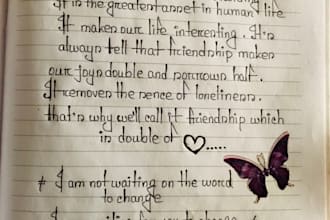 It is the greatest asset in human life
It makes our life interesting. It's
always tell that friendship makes
our joys double and sorrows half.
It removes the sence of loneliness.
that's why we'll call it friendship which
is double of ♡.....
# I am not waiting on the world
to change